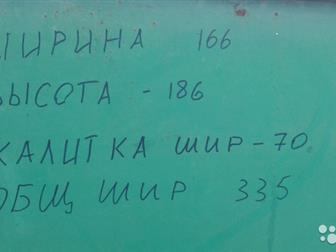 ШИРИНА 166
ВЫСОТА - 186
КАЛИТКА ШИР-70
ОБЩ ШИР 335